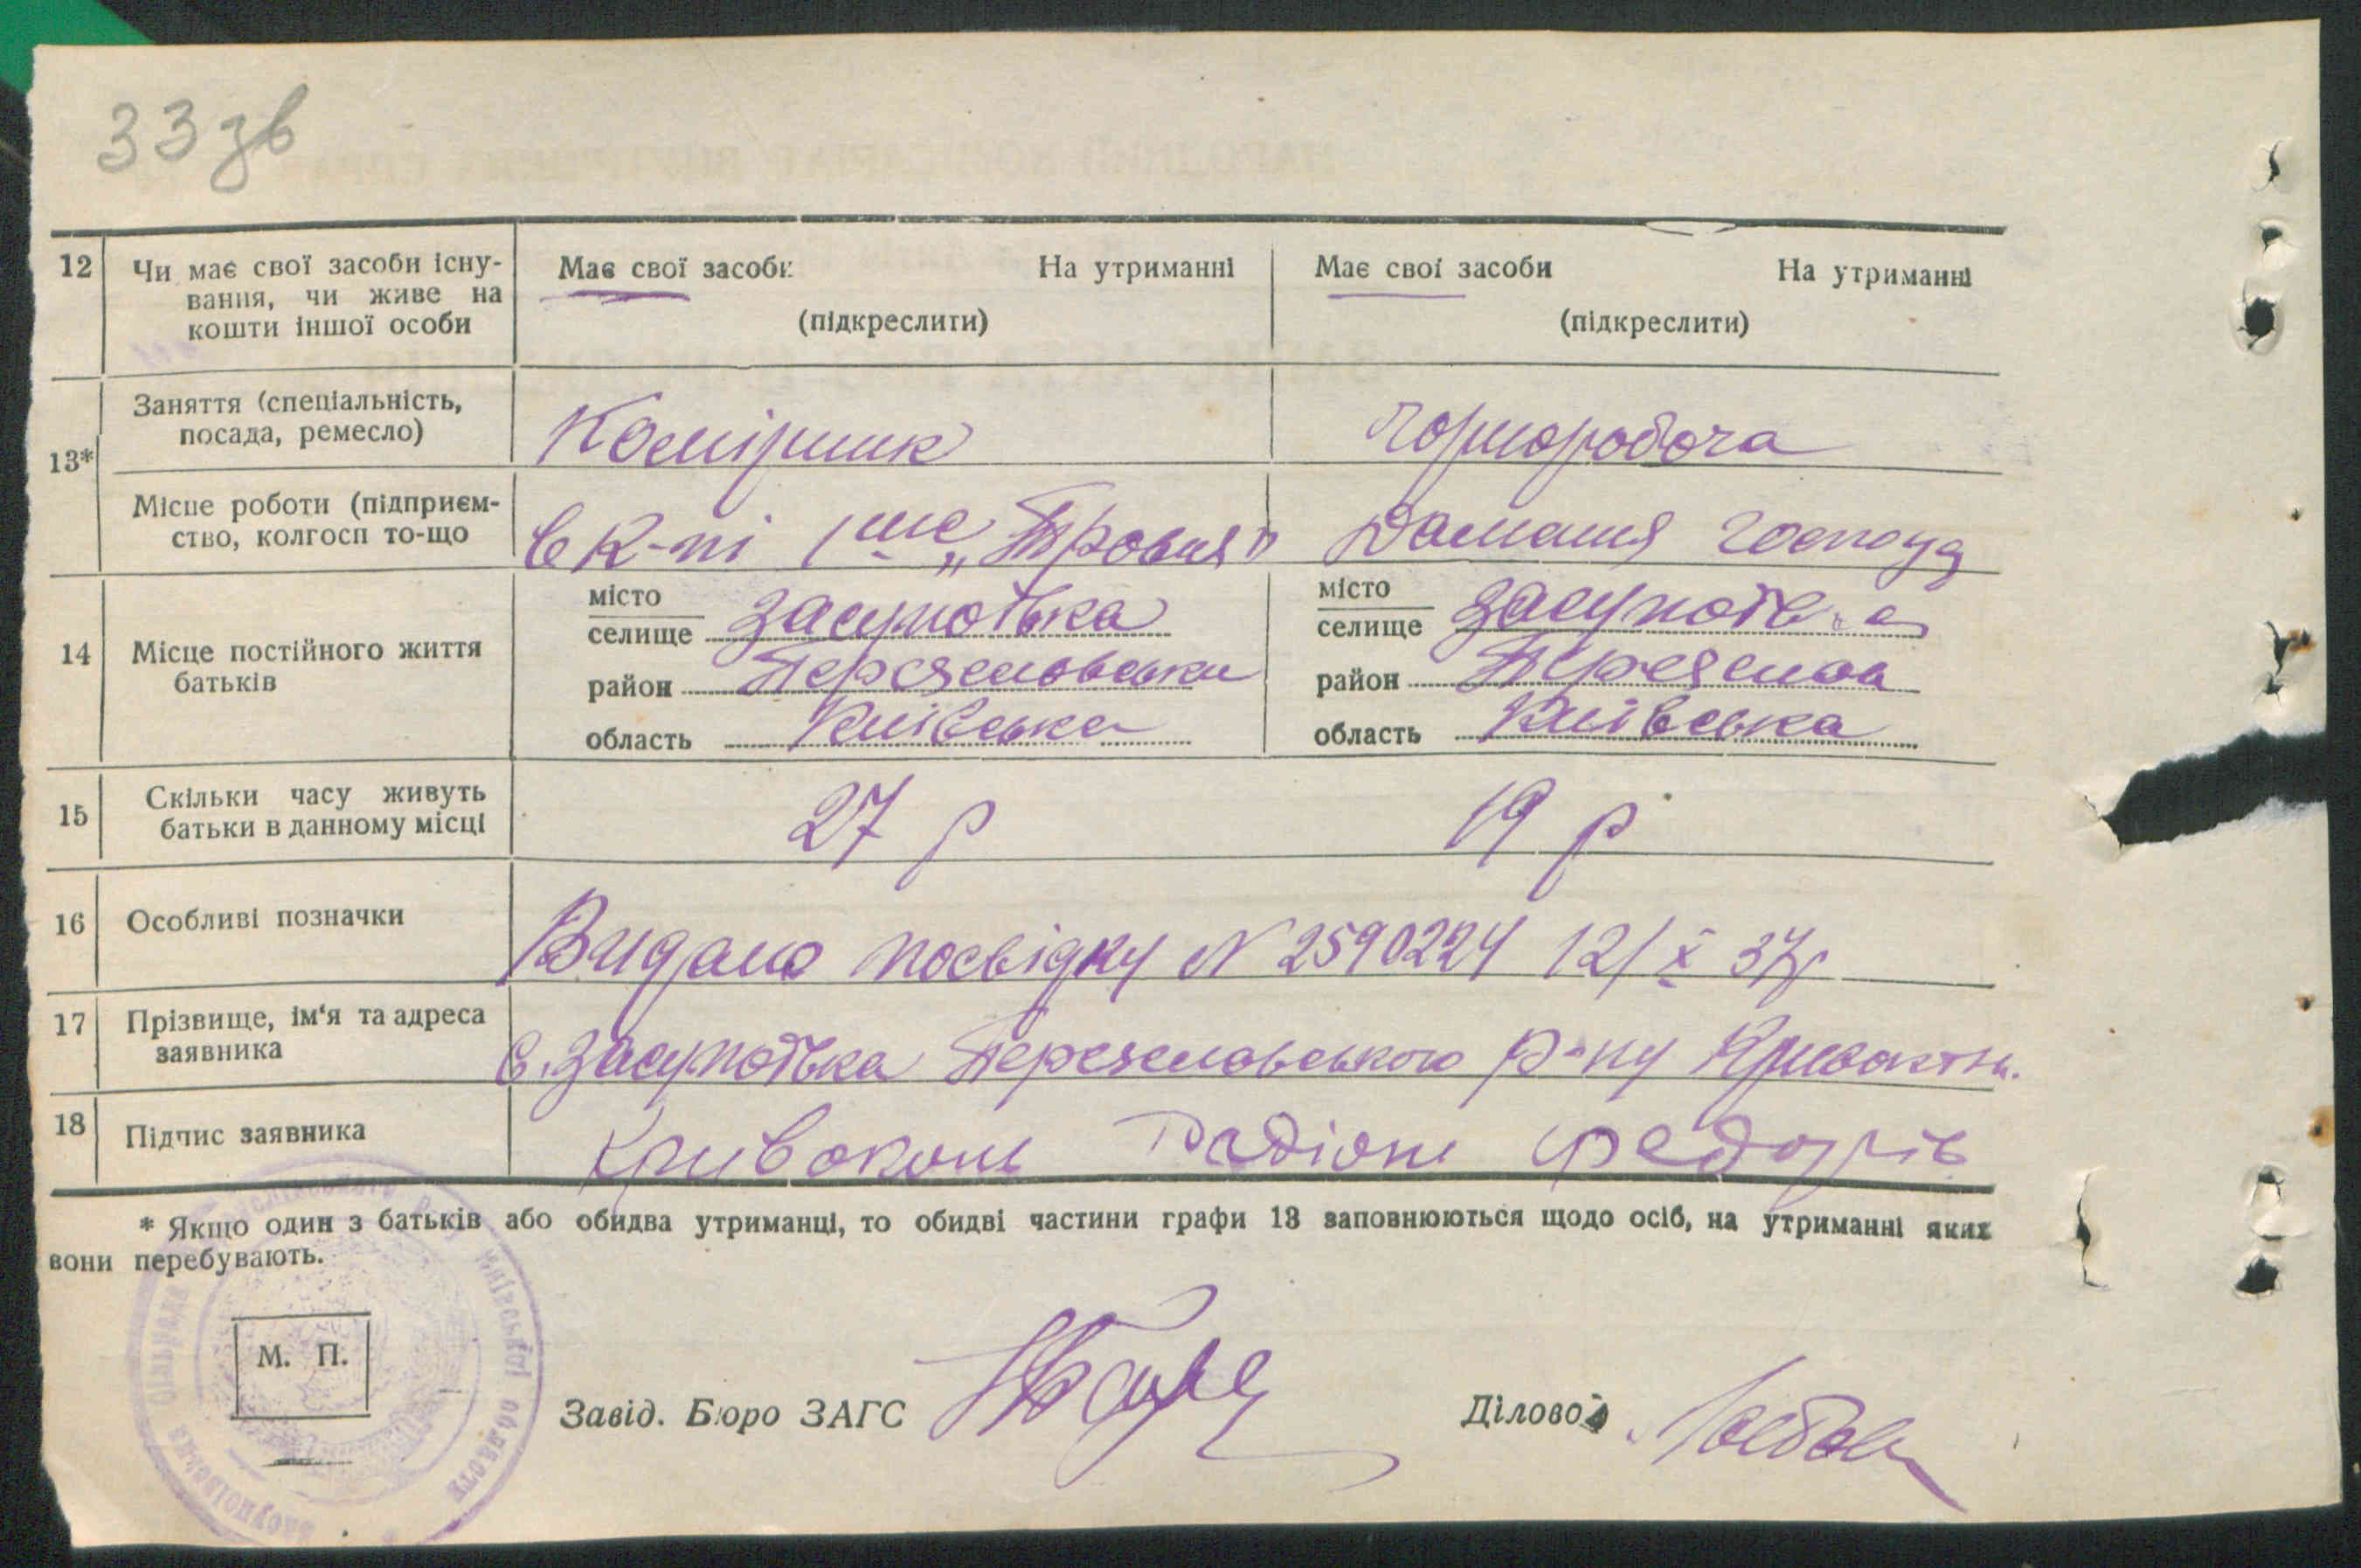 33 зв
12 Чи має свої засоби існу- Має свої засоби На утриманні Має свої засоби На утриманні
вання, чи живе на
кошти іншої особи (підкреслити) (підкреслити)
13* Заняття (спеціальність,
посада, ремесло) Комірник Чорноробоча
Місце роботи (підприєм-
ство, колгосп то-що В К-пі 1ше Домашня господ
14 Місце постійного життя
батьків
місто
селище Засупоївка
район Переяславськи
область Київська
місто
селище Засупоївка
район Переяслов
область Київська
15 Скільки часу живуть
батьки в данному місці 27 р 19 р
16 Особливі позначки Видано посвідку N 2590224 12/X 37р
17 Прізвище, ім'я та адреса
заявника с. Засупоївка Переяславського р-ну
18 Підпис заявника Кривокону Радіон Федорів
* Якщо один з батьків або обидва утриманці, то обидві частини графи 13 заповнюються щодо осіб, на утриманні яких
вони перебувають.
М. П.
Завід. Бюро ЗАГС
Ділово
Засупоївська сільрада Київської області